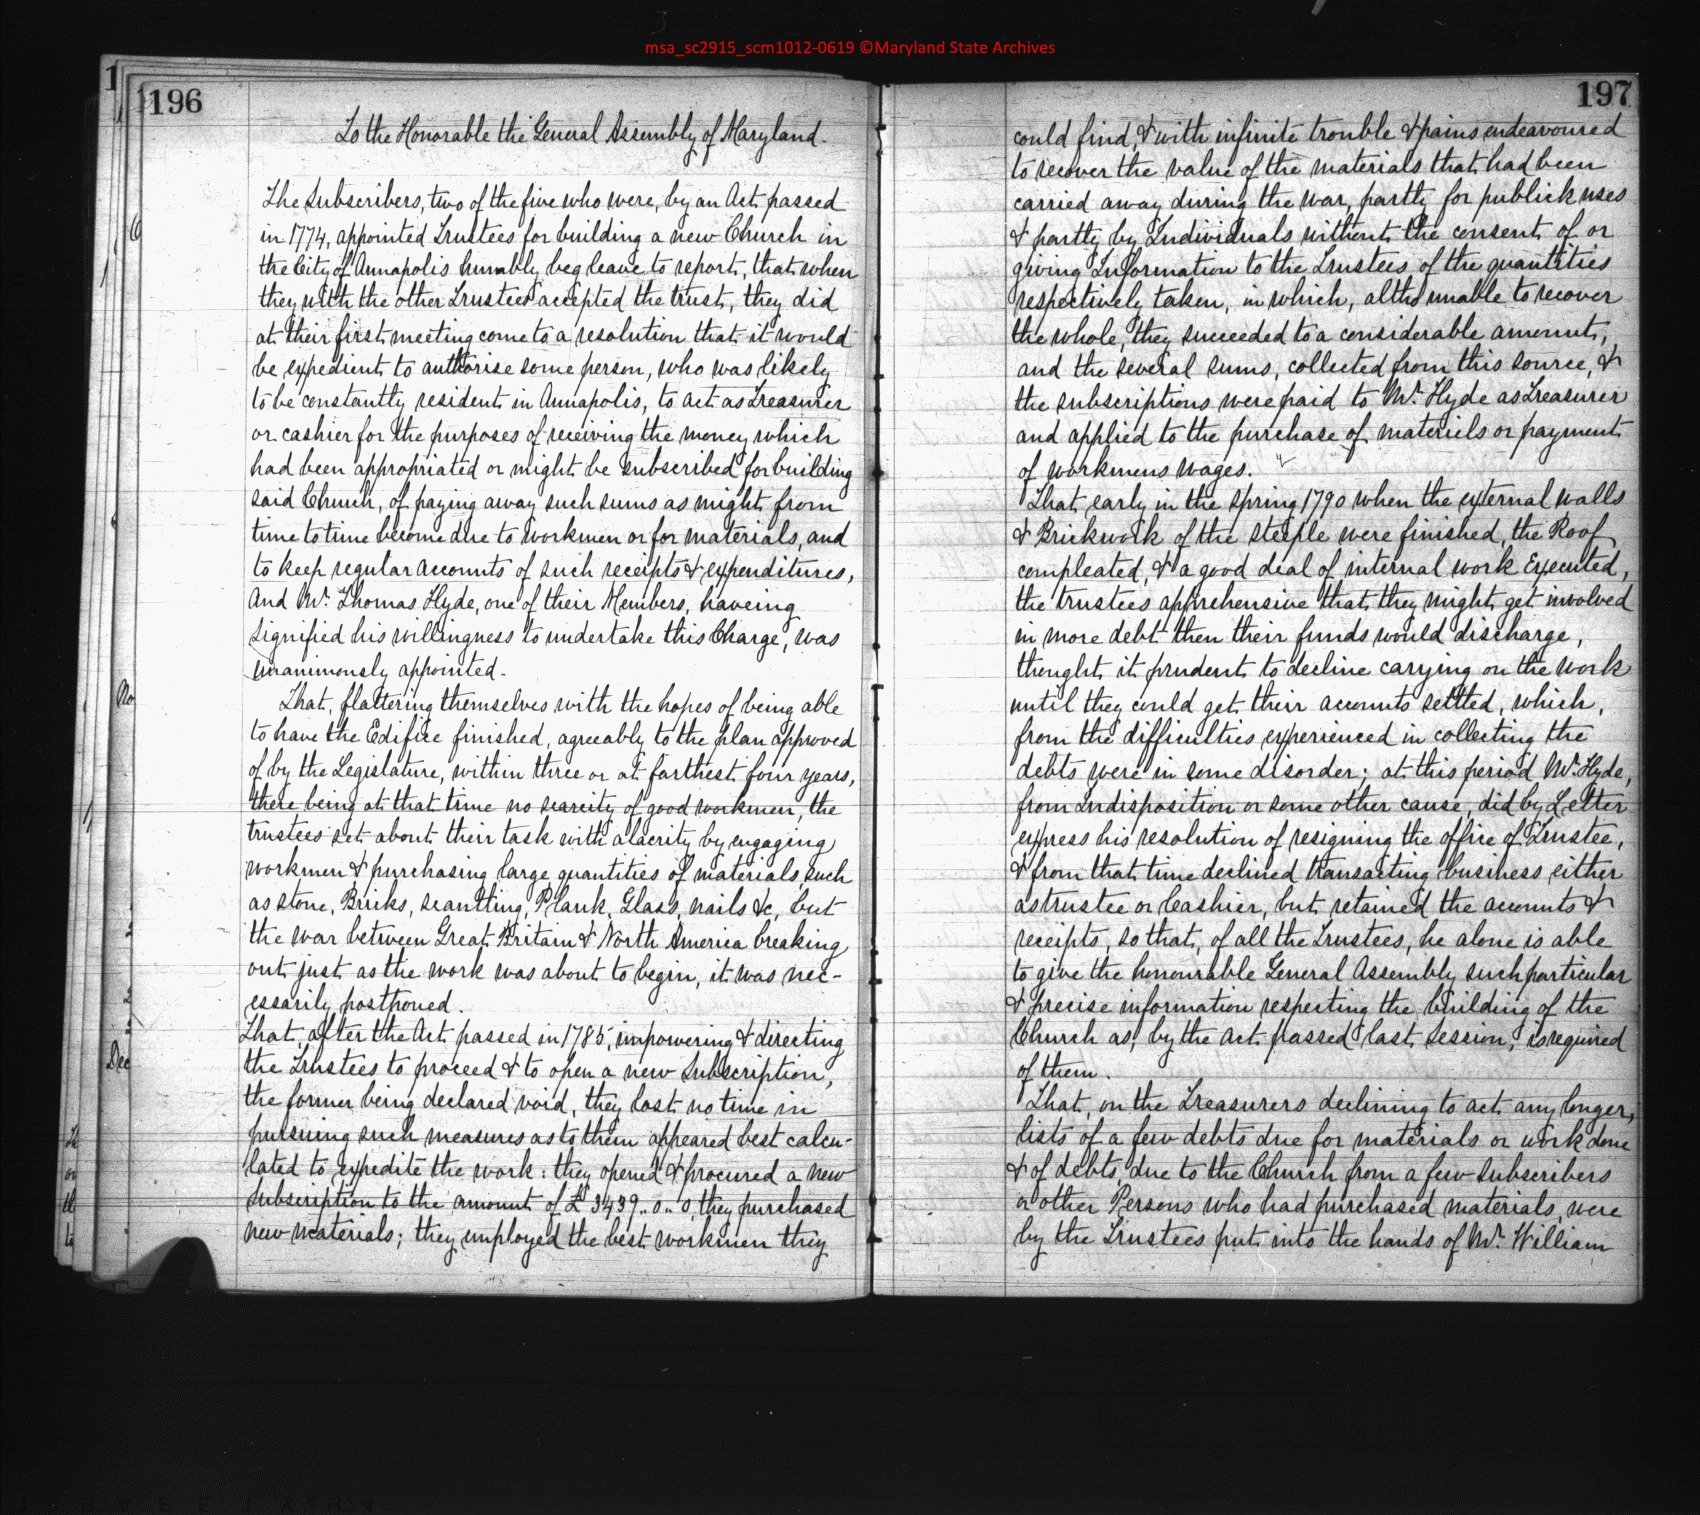 msa_sc2915_scm1012-0619 ©Maryland State Archives
196
To the Honorable the General Assembly of Maryland.
The Subscribers, two of the five who were, by an Act passed
in 1774, appointed Trustees for building a new Church in
the City of Annapolis humbly beg leave to report, that when
they with the other Trustees accepted the trust, they did
at their first meeting come to a resolution that it would
be expedient to authorise some person, who was likely
to be constantly resident in Annapolis, to act as Treasurer
or cashier for the purposes of receiving the money which
had been appropriated or might be subscribed for building
said Church, of paying away such sums as might from
time to time become due to workmen or for materials, and
to keep regular accounts of such receipts & expenditures,
And Mr. Thomas Hyde, one of their Members, haveing
signified his willingness to undertake this Charge, was
unanimously appointed.
That, flattering themselves with the hopes of being able
to have the Edifice finished, agreeably to the plan approved
of by the Legislature, within three or at farthest four years,
there being at that time no scarcity of good workmen, the
trustees set about their task with alacrity by engaging
workmen & purchasing large quantities of materials such
as stone, Bricks, scantting, Plank, Glass, nails &c, but
the war between Great Britain & North America breaking
out just as the work was about to begin, it was nec-
essarily postponed.
That, after the Act passed in 1785, impowering & directing
the Trustees to proceed & to open a new Subscription,
the former being declared void, they lost no time in
pursuing such measures as to them appeared best calcu-
lated to expedite the work: they opened & procured a new
subscription to the amount of £3439..0..0, they purchased
new materials; they employed the best workmen they
No
Dec
197
could find, & with infinite trouble & pains endeavoured
to recover the value of the materials that had been
carried away during the war, partly for publick uses
& partly by Individuals without the consent of or
giving Information to the Trustees of the quantities
respectively taken, in which, altho unable to recover
the whole, they succeeded to a considerable amount,
and the several sums, collected from this source, &
the subscriptions were paid to Mr. Hyde as Treasurer
and applied to the purchase of materiels or payment
of workmens wages.
That early in the spring 1790 when the external walls
& Brickwork of the steeple were finished, the Roof
compleated, & a good deal of internal work Executed,
the trustees apprehensive that they might get involved
in more debt then their funds would discharge,
thought it prudent to decline carying on the work
until they could get their accounts settled, which,
from the difficulties experienced in collecting the
debts were in some disorder; at this period Mr. Hyde,
from Indisposition or some other cause, did by Letter
express his resolution of resigning the office of Trustee,
& from that time declined transacting business either
as trustee or Cashier, but retained the accounts &
receipts, so that, of all the Trustees, he alone is able
to give the honourable General Assembly such particular
& precise information respecting the building of the
Church as, by the Act passed last Session, is required
of them.
That, on the Treasurers declining to act any longer,
lists of a few debts due for materials or work done
& of debts due to the Church from a few subscribers
or other Persons who had purchased materials, were
by the Trustees put into the hands of Mr. William